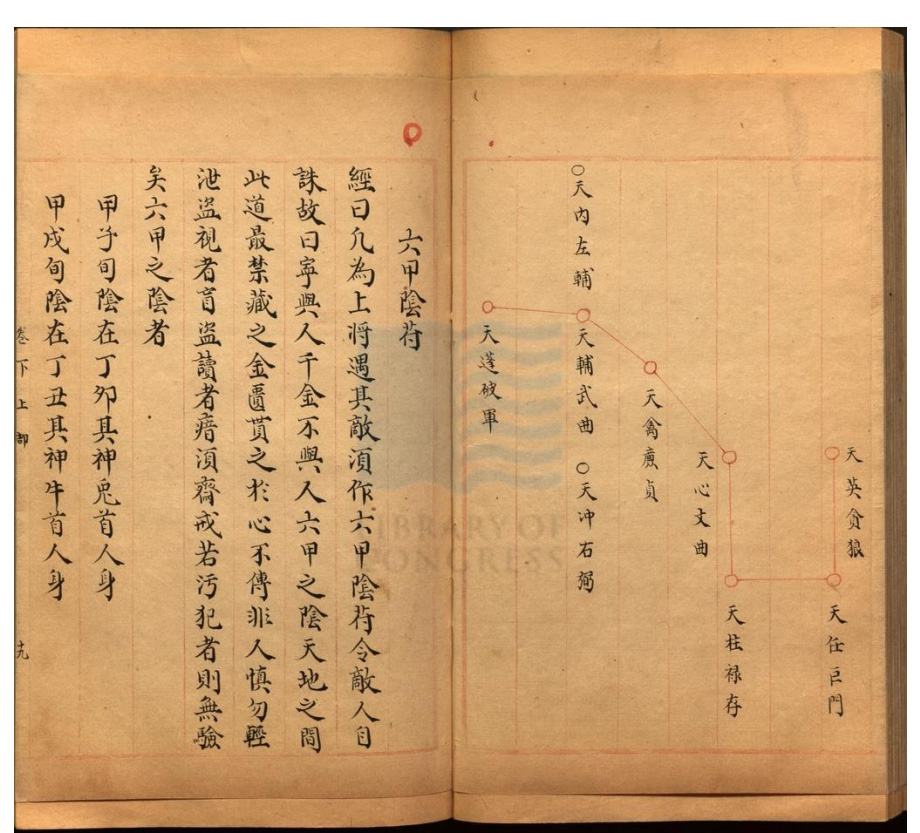 天英貪狼
天任巨門
天柱祿存
天心文曲
天禽廉貞
○天內左輔
天輔武曲
○天冲右弼
天蓬破軍
六甲陰符
經曰凡為上將遇其敵須作六甲陰符令敵人自
誅故曰寧與人千金不與人六甲之陰天地之間
此道最禁藏之金匱貫之於心不傳非人慎勿輕
泄盜視者盲盜讀者瘖須齋戒若污犯者則無驗
矣六甲之陰者
甲子旬陰在丁卯其神兔首人身
甲戌旬陰在丁丑其神牛首人身
卷下上部
十九
LIBRARY OF
CONGRESS